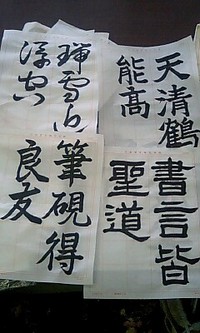 天清鶴
能高
瑞雪
書言皆
聖道
筆硯得
良友